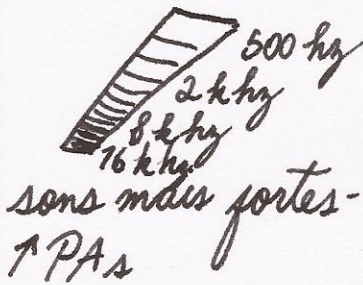 500 hz
2 k hz
8 k hz
16 k hz
sons mais fortes-
↑ PAs